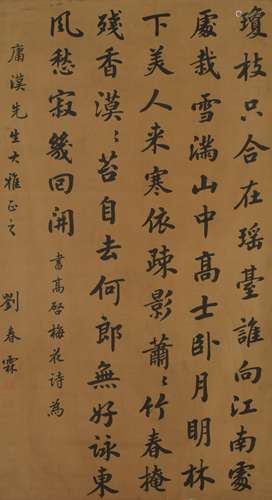 瓊枝只合在瑶臺誰向江南處
處栽雪滿山中高士卧月明林
下美人来寒依疎影蕭〻竹春掩
殘香漠〻苔自去何郎無好詠東
風愁寂幾回開 書高啓梅花詩為
庸漠先生大雅正之 劉春霖